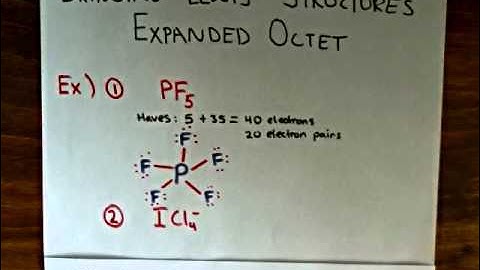 LEWIS STRUCTURES
EXPANDED OCTET
Ex) ① PF₅
Haves: 5 + 35 = 40 electrons
20 electron pairs
F
F F
P
F F
② ICl₄⁻